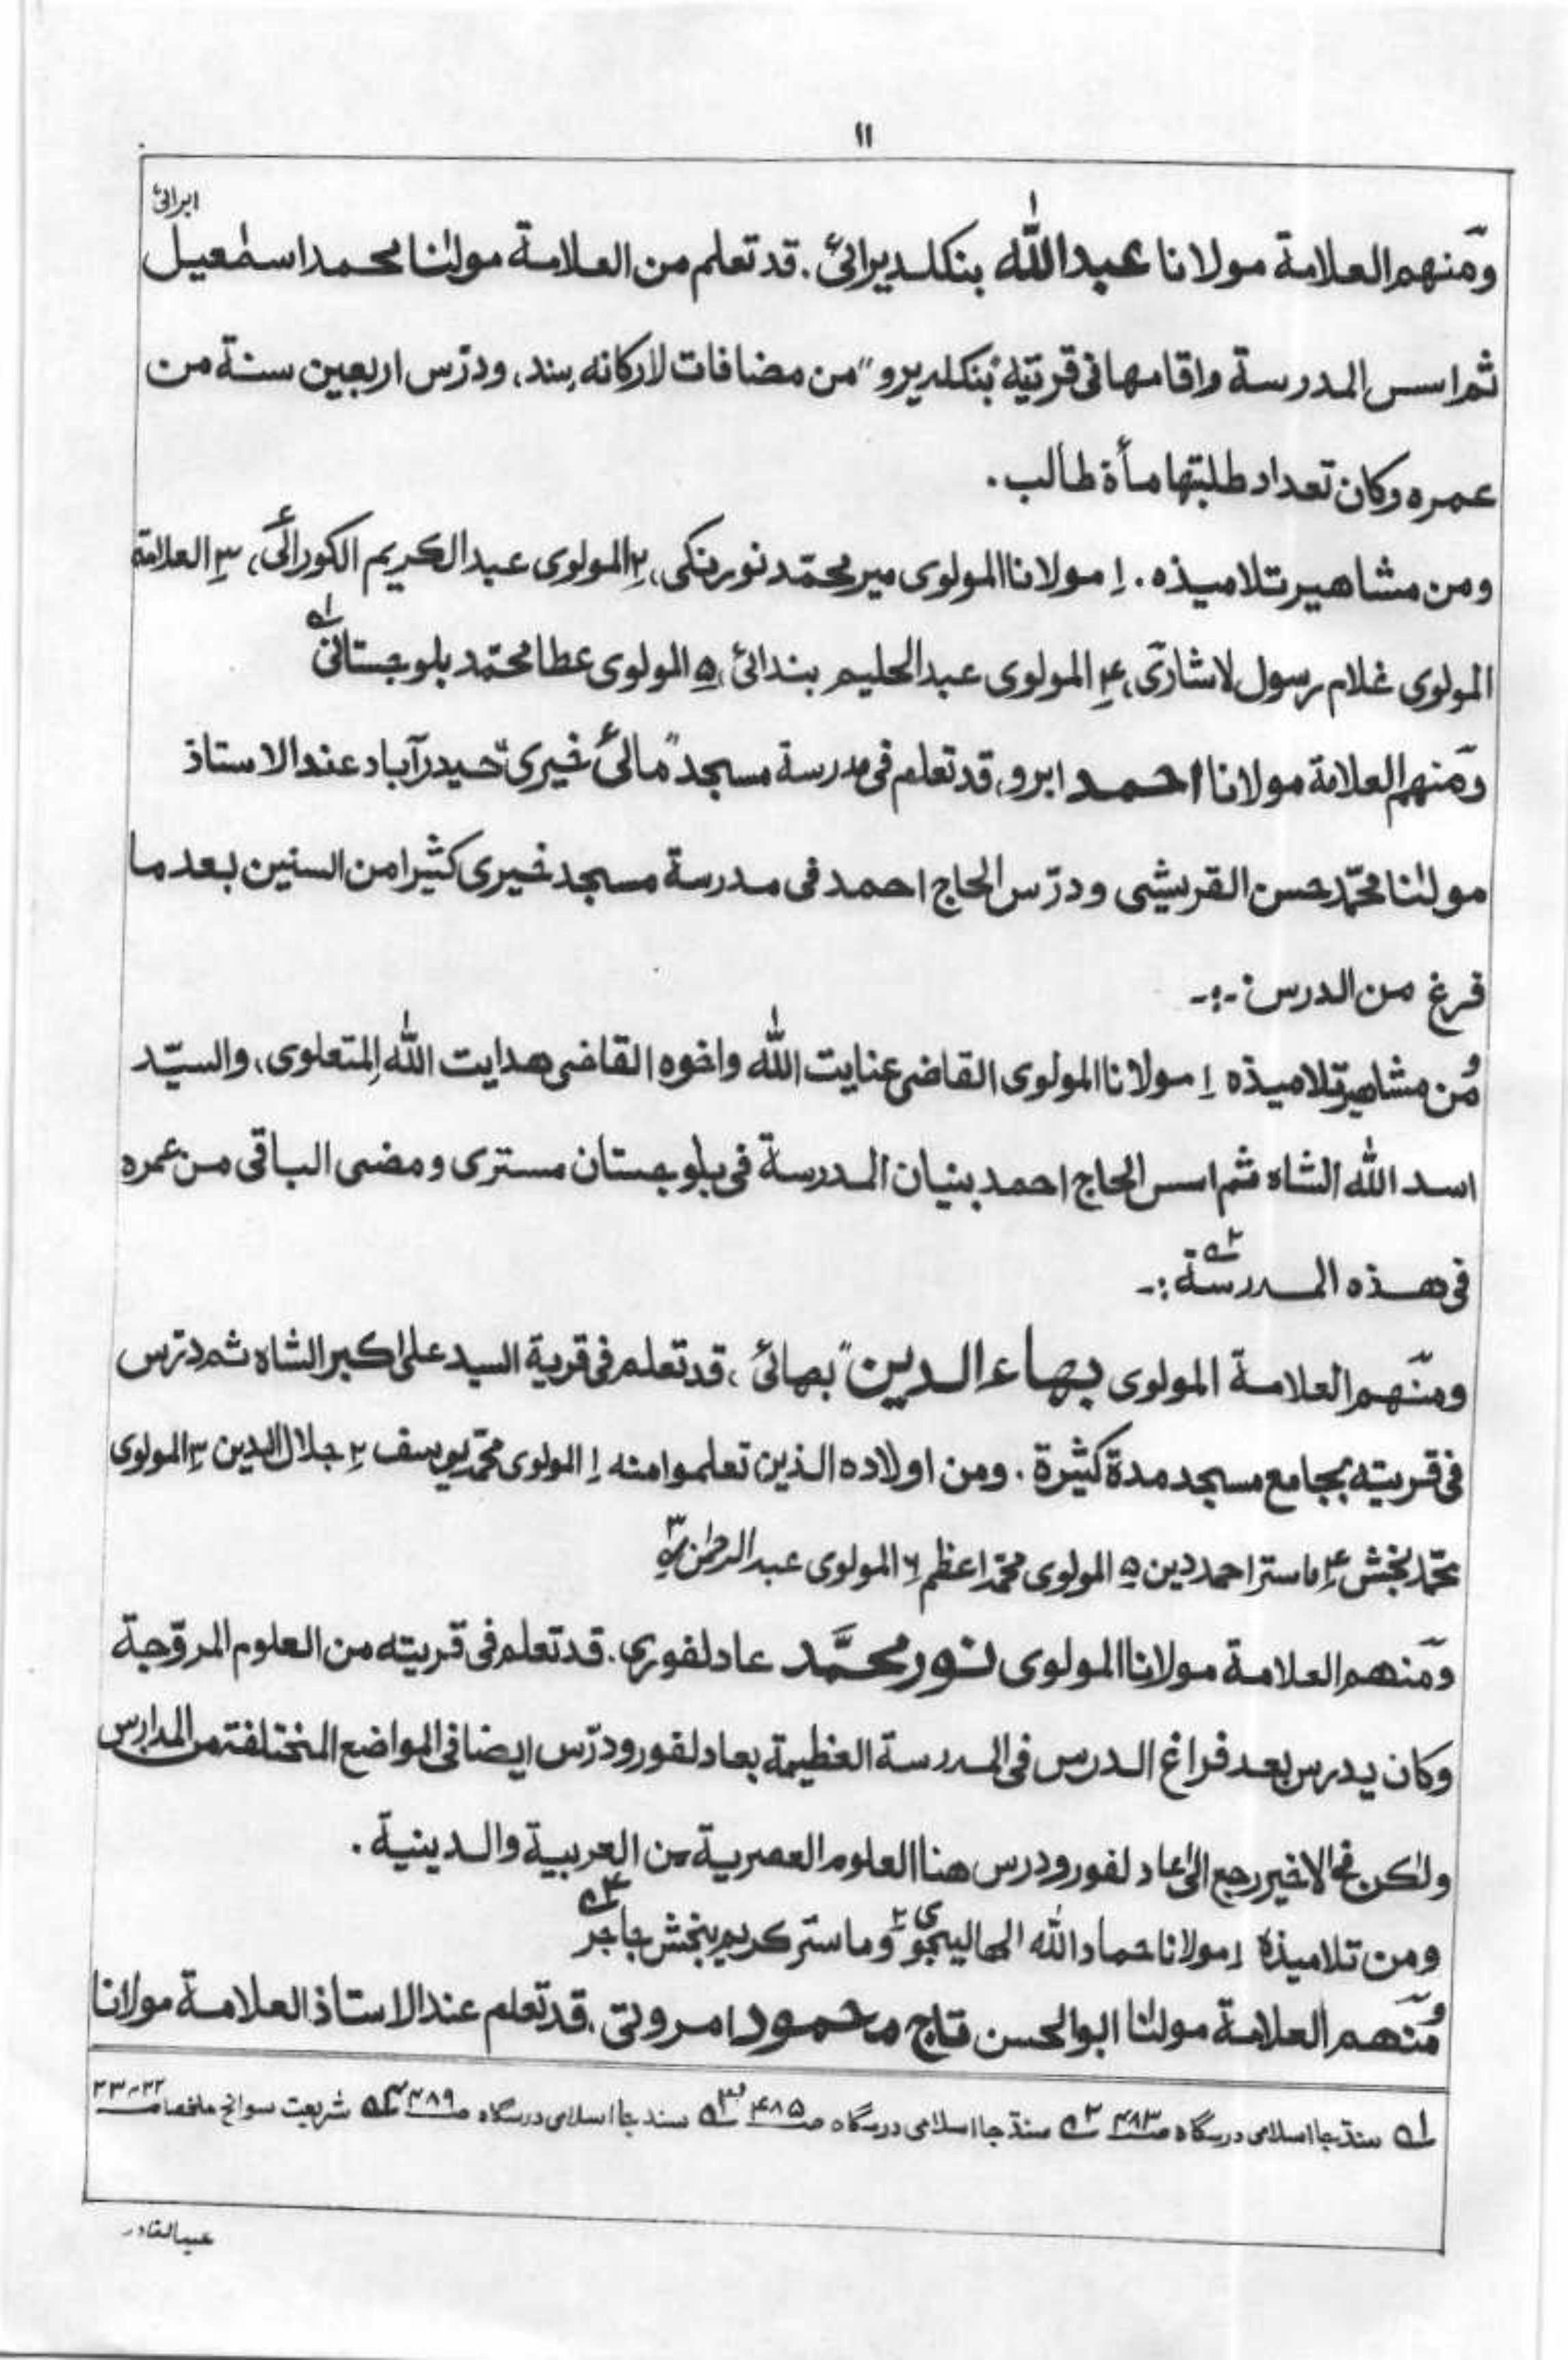 ١١
ايرائئ
ومنهم العلامة مولانا عبدالله بنكلديرائئ. قد تعلم من العلامة مولٰنا محمد اسمٰعيل
ثم اسس المدرسة واقامها فى قريته "بنكلديرو" من مضافات لاركانه سند، ودرّس اربعين سنة من
عمره وكان تعداد طلبتها مأة طالب.
ومن مشاهير تلاميذه. ١ مولانا المولوى مير محمّد نورنكى، ٢ المولوى عبدالكريم الكورائئ، ٣ العلامة
المولوى غلام رسول لاشارى، ۴ المولوى عبدالحليم بندائئ، ۵ المولوى عطا محمّد بلوچستانى ١ـه
ومنهم العلامة مولانا احمد ابرو، قد تعلم فى مدرسة مسجد "مائئ خيرى" حيدرآباد عند الاستاذ
مولٰنا محمّد حسن القريشى ودرّس الحاج احمد فى مدرسة مسجد خيرى كثيرا من السنين بعد ما
فرغ من الدرس :-
ومن مشاهير تلاميذه ١ مولانا المولوى القاضى عنايت الله واخوه القاضى هدايت الله المتعلوى، والسيّد
اسد الله الشاه ثم اسس الحاج احمد بنيان المدرسة فى بلوچستان مسترى ومضى الباقى من عمره
فى هذه المدرسة ٢ـه :-
ومنهم العلامة المولوى بهاء الدين "بهائئ"، قد تعلم فى قرية السيد على اكبر الشاه ثم درّس
فى قريته بجامع مسجد مدة كثيرة. ومن اولاده الذين تعلموا منه ١ المولوى محمّد يوسف ٢ جلال الدين ٣ المولوى
محمّد بخش ۴ ماستر احمد دين ۵ المولوى محمّد اعظم ٦ المولوى عبدالرحمٰن ٣ـه
ومنهم العلامة مولانا المولوى نور محمَّد عادلفورى. قد تعلم فى قريته من العلوم المروّجة
وكان يدرس بعد فراغ الدرس فى المدرسة العظيمة بعادلفور ودرّس ايضا فى المواضع المختلفة من المدارس
ولٰكن فى الاخير رجع الى عادلفور ودرس هنا العلوم العصرية من العربية والدينية.
ومن تلاميذه ١ مولانا حماد الله الهاليجوى ٢ وماستر كريم بخش جاجر ۴ـه
ومنهم العلامة مولٰنا ابوالحسن تاج محمود امروتى، قد تعلم عند الاستاذ العلامة مولانا
١ـه سنڌ جا اسلامى درسگاه صـ ۴٨٣ ٢ـه سنڌ جا اسلامى درسگاه صـ ۴٨۵ ٣ـه سنڌ جا اسلامى درسگاه صـ ۴٨٩ ۴ـه شريعت سوانح ملخصا صـ ٢٢-٢٣
عبدالقادر